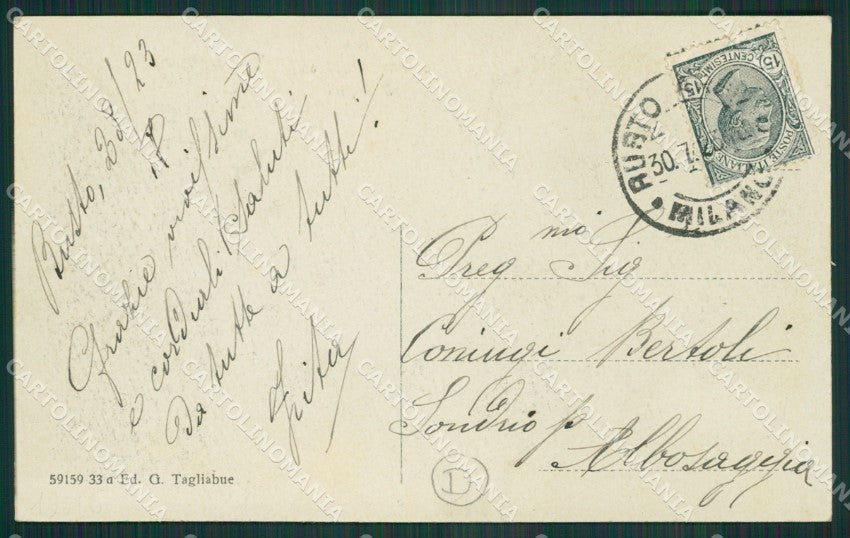 Busto, 28/7/23
Grazie vivissime
e cordiali saluti
da tutte a tutti!
Gita
59159 33 a Ed. G. Tagliabue
15 CENTESIMI 15
POSTE ITALIANE
BUSTO
30.7.23
MILANO
Preg mi Sig
Coniugi Bertoli
Sondrio p Albosaggia
D
CARTOLINOMANIA